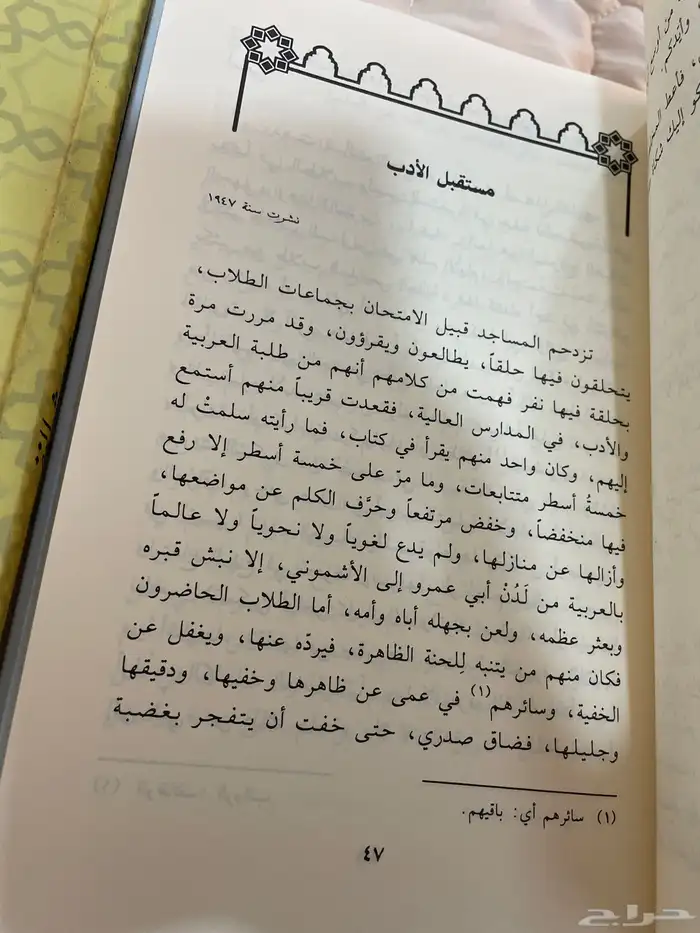 مستقبل الأدب
نشرت سنة ١٩٤٧
تزدحم المساجد قبيل الامتحان بجماعات الطلاب،
يتحلقون فيها حلقاً، يطالعون ويقرؤون، وقد مررت مرة
بحلقة فيها نفر فهمت من كلامهم أنهم من طلبة العربية
والأدب، في المدارس العالية، فقعدت قريباً منهم أستمع
إليهم، وكان واحد منهم يقرأ في كتاب، فما رأيته سلمتْ له
خمسةُ أسطر متتابعات، وما مرّ على خمسة أسطر إلا رفع
فيها منخفضاً، وخفض مرتفعاً وحرَّف الكلم عن مواضعها،
وأزالها عن منازلها، ولم يدع لغوياً ولا نحوياً ولا عالماً
بالعربية من لَدُنْ أبي عمرو إلى الأشموني، إلا نبش قبره
وبعثر عظمه، ولعن بجهله أباه وأمه، أما الطلاب الحاضرون
فكان منهم من يتنبه لِلحنة الظاهرة، فيردّه عنها، ويغفل عن
الخفية، وسائرهم(١) في عمى عن ظاهرها وخفيها، ودقيقها
وجليلها، فضاق صدري، حتى خفت أن يتفجر بغضبة
(١) سائرهم أي: باقيهم.
٤٧
حراج